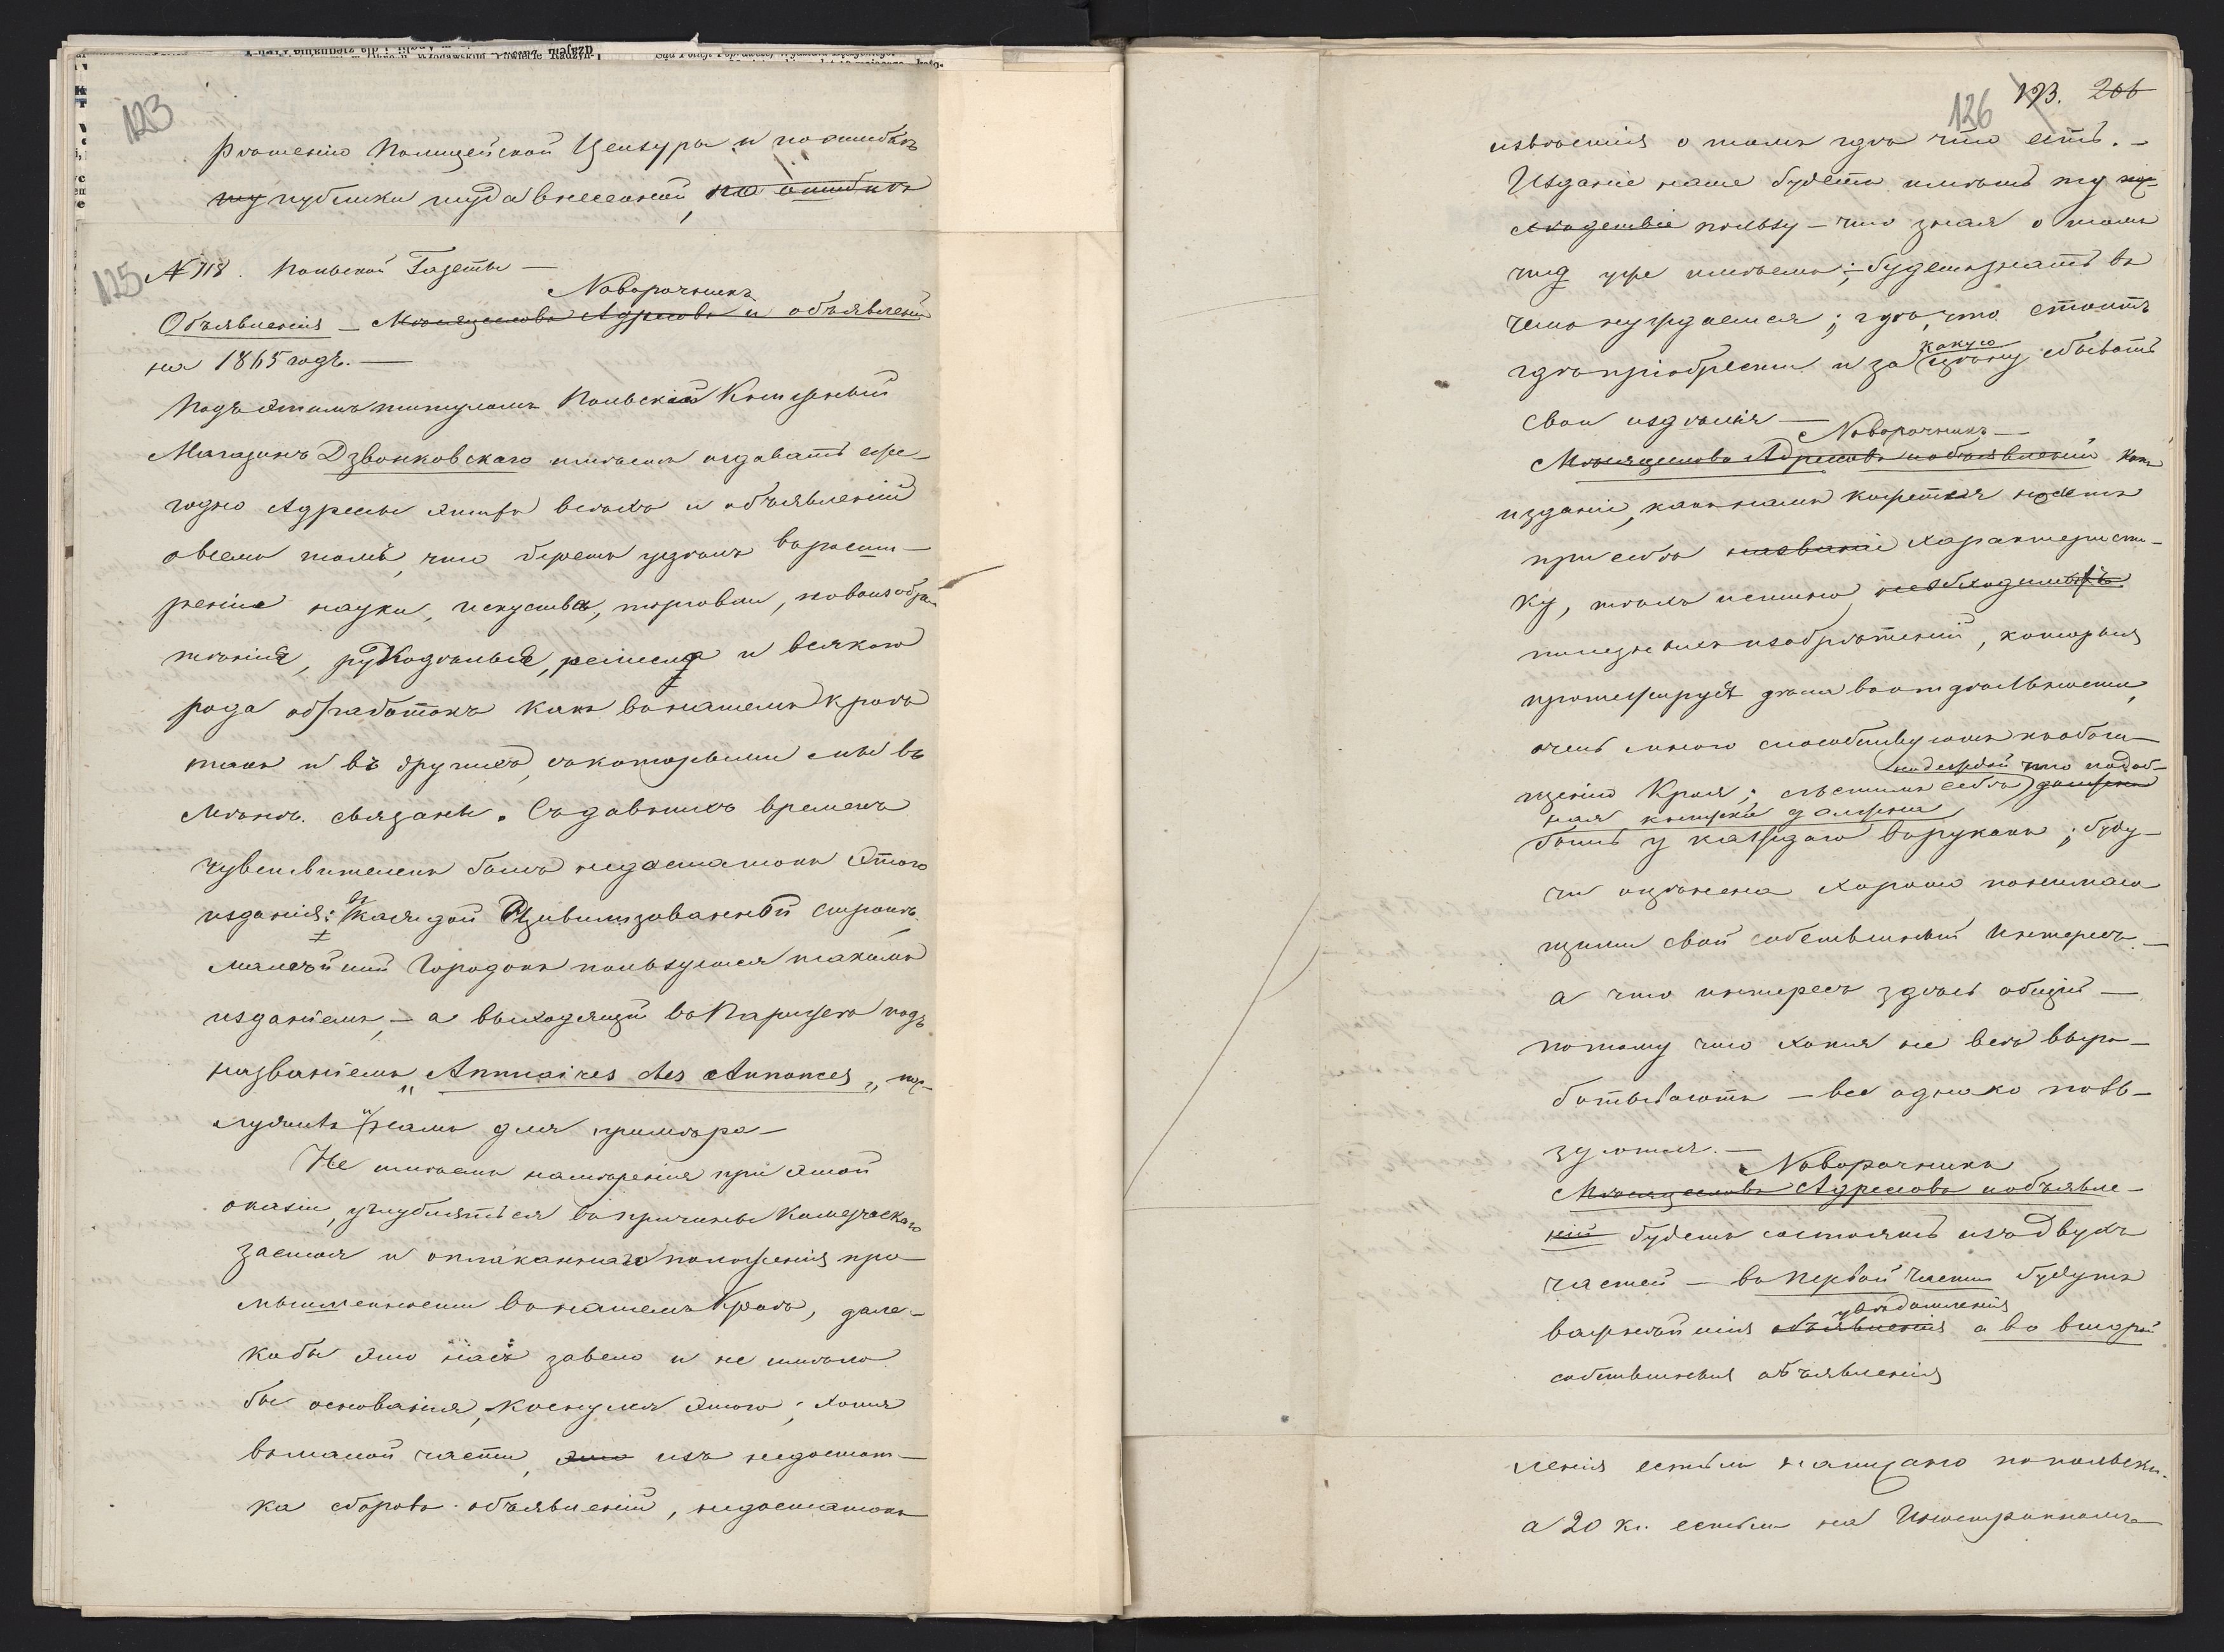 123
рѣшенію Полицейской Цензуры и по ошибкѣ
ту публики туда внесенной, по ошибкѣ
125
№ 718. Польской Газеты —
Новорочникъ
Объявленія — Мѣсяцесловъ Адресовъ и объявленій
на 1865 годъ. —
Подъ этимъ титуломъ Польскій Книжный
Магазинъ Дзвонковскаго имѣетъ издавать еже-
годно Адресы этихъ всѣхъ и объявленій
о всемъ томъ, что беретъ удѣлъ въ расши-
реніи науки, искуства, торговли, новоизобрѣ-
тенія, рукодѣлье, ремесла и всякого
рода обработокъ какъ въ нашемъ Краѣ
такъ и въ другихъ, съ которыми мы въ
связаны. Съ давнихъ временъ
чувствителенъ былъ недостатокъ этого
изданія: въ каждой Цивилизованной странѣ
малѣйшій Городокъ пользуется такимъ
изданіемъ, — а выходящій въ Парижѣ подъ
названіемъ „Annuaires des Annonces„
служитъ намъ для примѣра —
Не имѣемъ намѣренія при этой
оказіи, углубляться въ причины Комерческаго
застоя и оплаканнаго положенія про-
мышленности въ нашемъ Краѣ, дале-
ко бы это насъ завело и не имѣло
бы основанія, коснулся этого; хотя
въ малой части, это изъ недостат-
ка сборовъ объявленій, недостатокъ
126 123. 206
извѣстія о томъ гдѣ что есть. —
Изданіе наше будетъ имѣть ту
пользу — что зная о томъ
что уже имѣемъ; будемъ знать въ
чемъ нуждаемся; гдѣ, что стоитъ
гдѣ пріобрести и за какую цѣну сбывать
свои издѣлія —
Новорочникъ —
Мѣсяцесловъ Адресовъ и объявленій какъ
изданіе, какъ намъ кажется носитъ
при себѣ названіе характеристи-
ку, тѣхъ истинно необходимыхъ
полезныхъ изобрѣтеній, которыя
въ отдѣльности,
очень много способствуютъ къ обога-
щенію Края; льстимъ себѣ надеждой что подоб-
ная книжка должна
быть у каждаго въ рукахъ; буду-
чи оцѣнена хорошо понимаю-
щими свой собственный интересъ. —
а что интересъ здѣсь общій —
потому что хотя не всѣ выра-
ботываютъ — всѣ однако поль-
зуются. —
Новорочникъ
Мѣсяцесловъ Адресовъ и объявле-
ній будетъ состоять изъ двухъ
частей — въ первой части будутъ
увѣдомленія
важнѣйшія объявленія а во второй
собственныя объявленія
ленія естьли написано по польски.
а 20 к. естьли на Иностранномъ